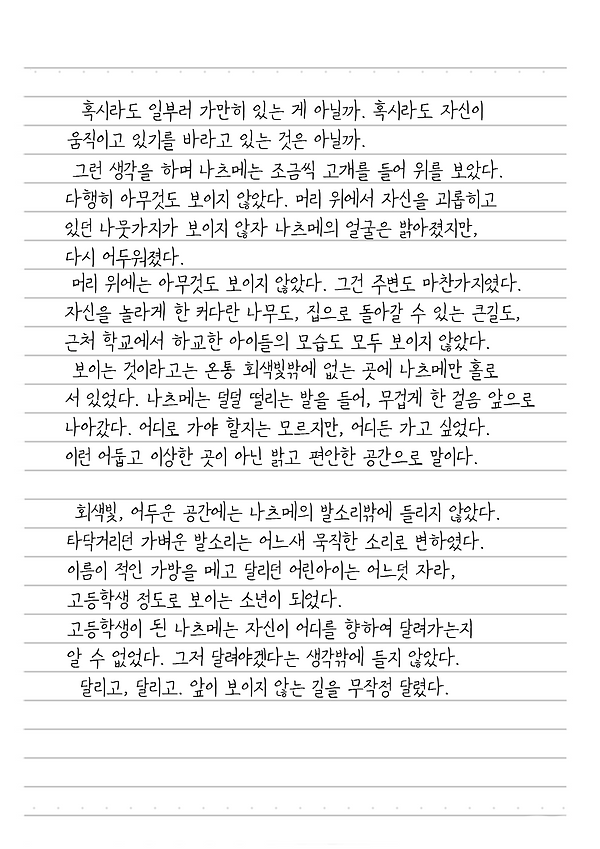 혹시라도 일부러 가만히 있는 게 아닐까. 혹시라도 자신이
움직이고 있기를 바라고 있는 것은 아닐까.
그런 생각을 하며 나츠메는 조금씩 고개를 들어 위를 보았다.
다행히 아무것도 보이지 않았다. 머리 위에서 자신을 괴롭히고
있던 나뭇가지가 보이지 않자 나츠메의 얼굴은 밝아졌지만,
다시 어두워졌다.
머리 위에는 아무것도 보이지 않았다. 그건 주변도 마찬가지였다.
자신을 놀라게 한 커다란 나무도, 집으로 돌아갈 수 있는 큰길도,
근처 학교에서 하교한 아이들의 모습도 모두 보이지 않았다.
보이는 것이라고는 온통 회색빛밖에 없는 곳에 나츠메만 홀로
서 있었다. 나츠메는 덜덜 떨리는 발을 들어, 무겁게 한 걸음 앞으로
나아갔다. 어디로 가야 할지는 모르지만, 어디든 가고 싶었다.
이런 어둡고 이상한 곳이 아닌 밝고 편안한 공간으로 말이다.
회색빛, 어두운 공간에는 나츠메의 발소리밖에 들리지 않았다.
타닥거리던 가벼운 발소리는 어느새 묵직한 소리로 변하였다.
이름이 적인 가방을 메고 달리던 어린아이는 어느덧 자라,
고등학생 정도로 보이는 소년이 되었다.
고등학생이 된 나츠메는 자신이 어디를 향하여 달려가는지
알 수 없었다. 그저 달려야겠다는 생각밖에 들지 않았다.
달리고, 달리고. 앞이 보이지 않는 길을 무작정 달렸다.